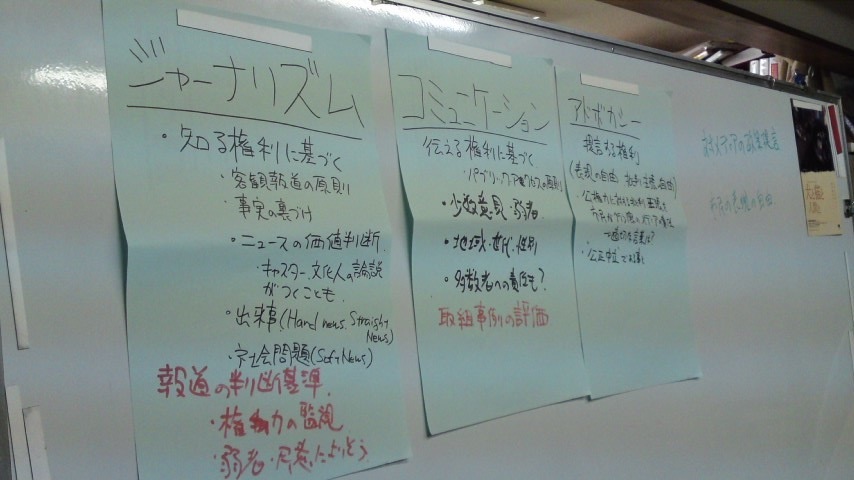 ジャーナリズム
・知る権利に基づく
・客観報道の原則
・事実の裏づけ
・ニュースの価値判断
・キャスター、文化人の論説
がつくことも
・出来事(Hard news. Straight
News)
・社会問題(Soft News)
報道の判断基準
・権力の監視
・弱者・民意によりそう
コミュニケーション
伝える権利に基づく
・パブリック・アクセスの原則
・少数意見・弱者
・地域・世代・性別
・多数者への責任も?
取組事例の評価
アドボカシー
提言する権利
(表現の自由
・公権力に対する
・公正中立
対メディアの政策提言
市民の表現の自由